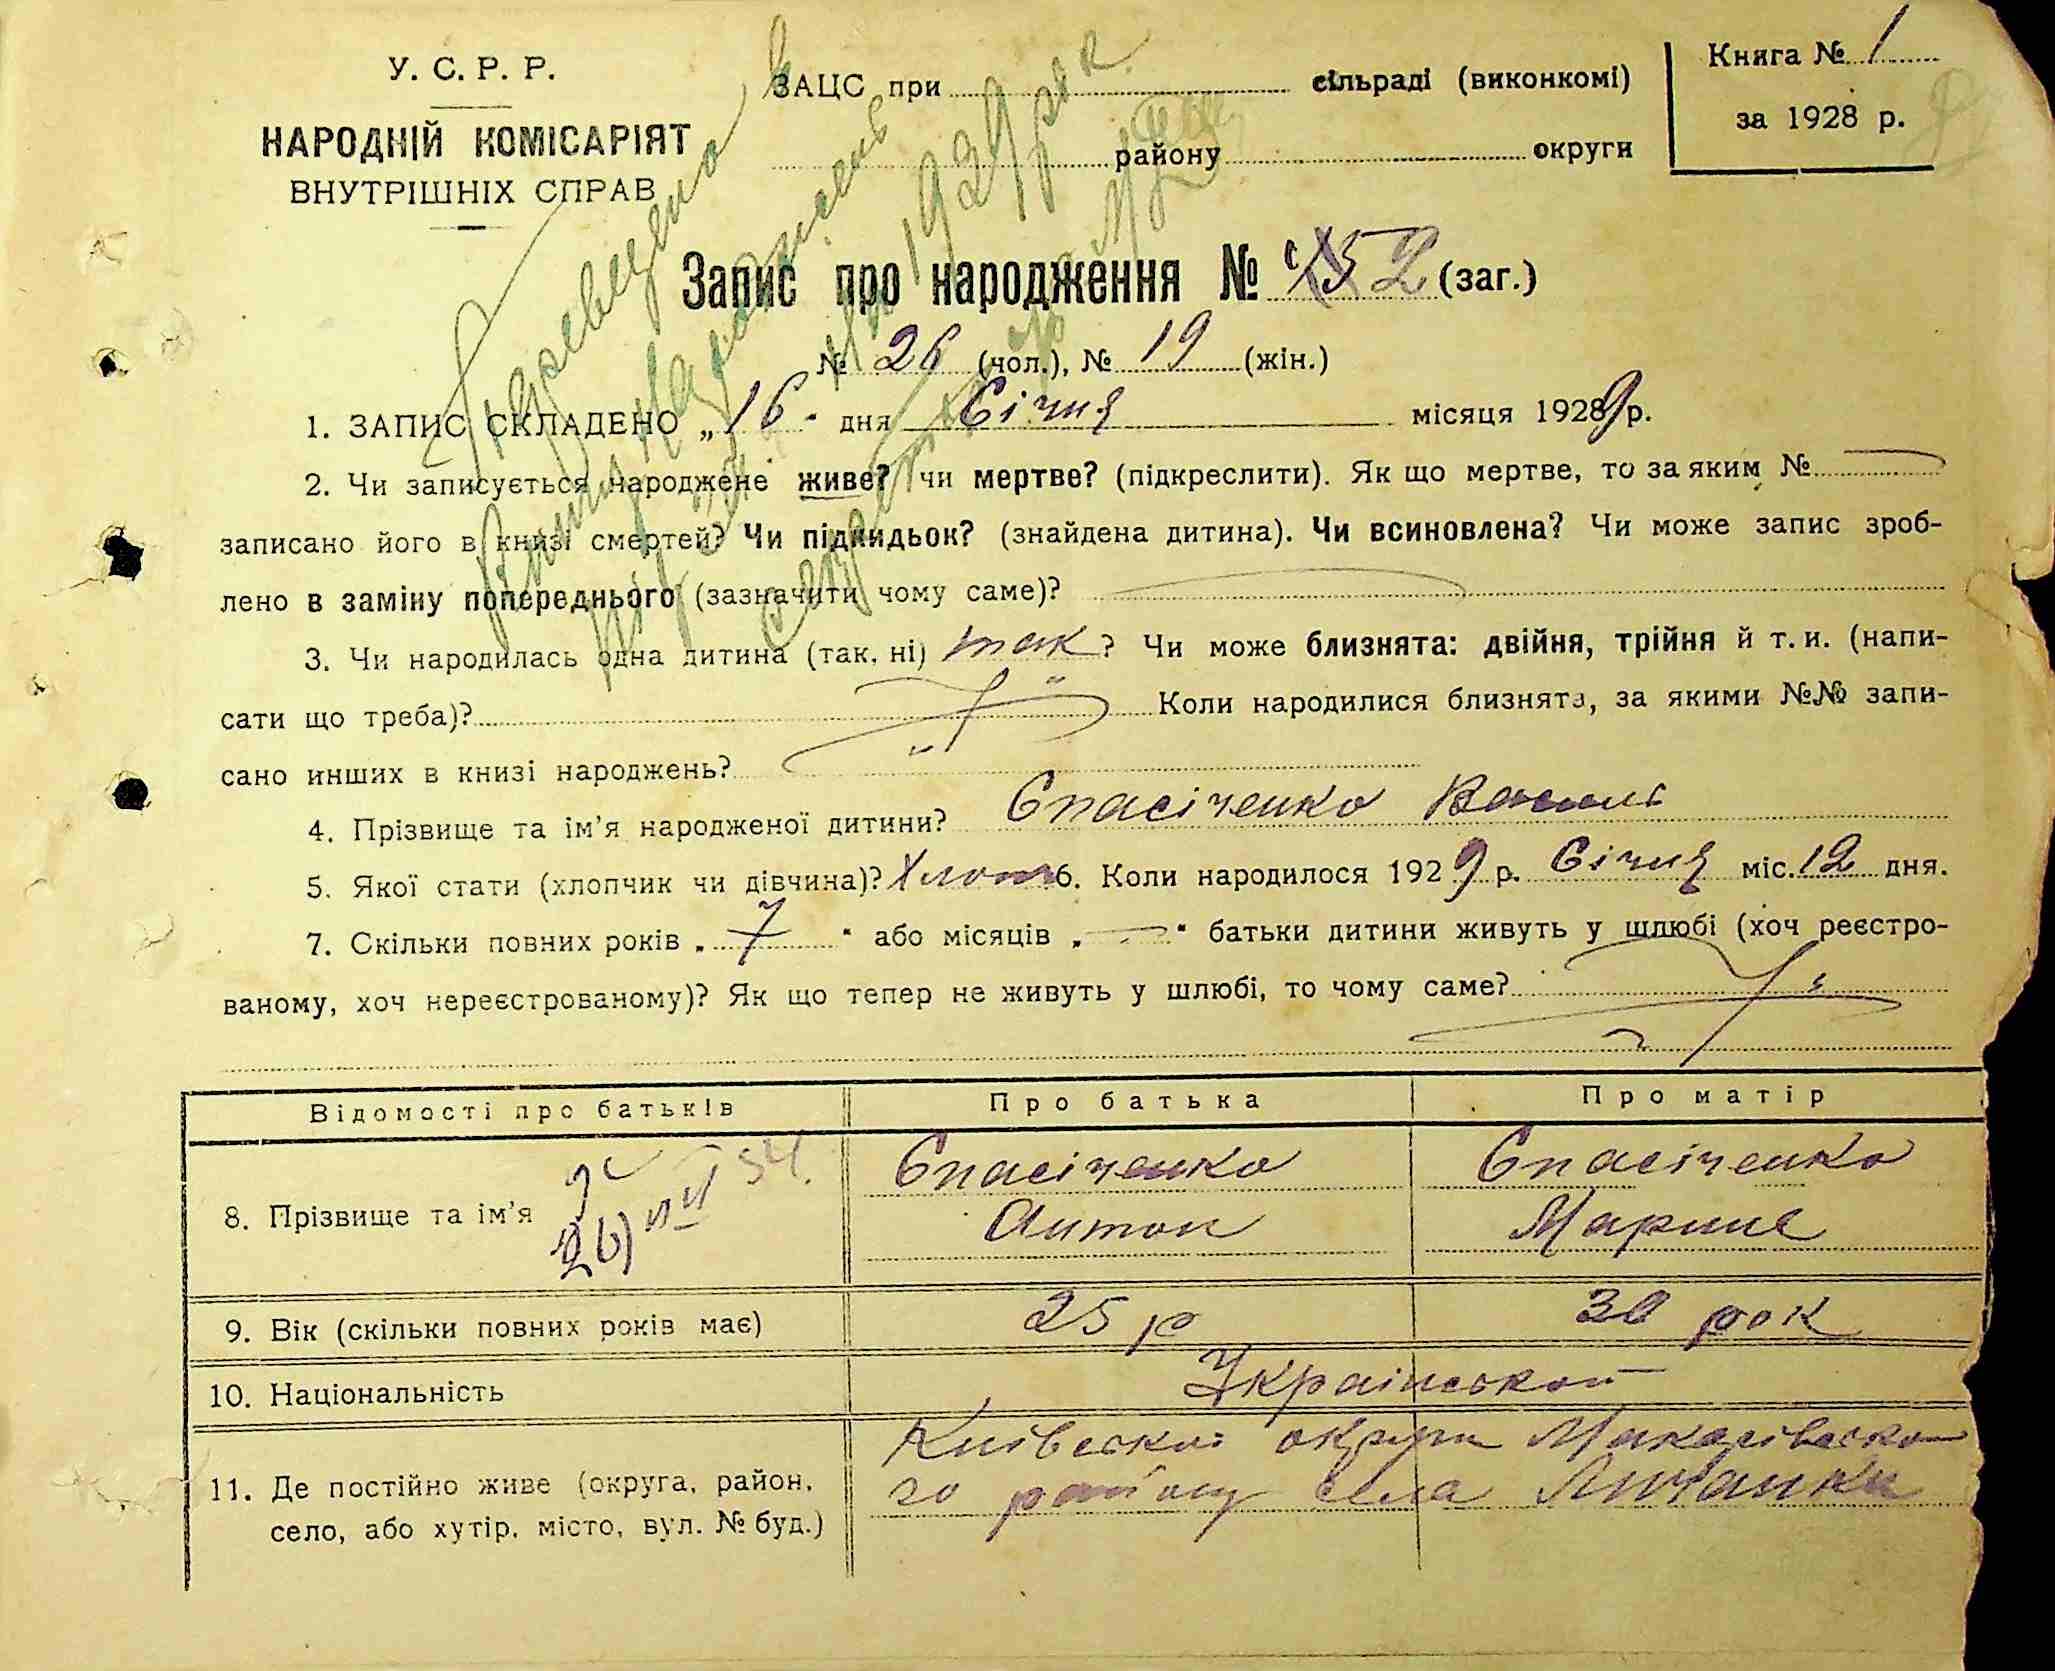 У. С. Р. Р.
НАРОДНІЙ КОМІСАРІЯТ
ВНУТРІШНІХ СПРАВ
ЗАЦС при сільраді (виконкомі)
району округи
Книга № 1
за 1928 р.
Переведено в
1929 рок.
Запис про народження № 2 (заг.)
№ 26 (чол.), № 19 (жін.)
1. ЗАПИС СКЛАДЕНО „16" дня Січня місяця 19289 р.
2. Чи записується народжене живе? чи мертве? (підкреслити). Як що мертве, то за яким №
записано його в книзі смертей? Чи підкидьок? (знайдена дитина). Чи всиновлена? Чи може запис зроб-
лено в заміну попереднього (зазначити чому саме)?
3. Чи народилась одна дитина (так, ні) так? Чи може близнята: двійня, трійня й т. и. (напи-
сати що треба)? Коли народилися близнята, за якими №№ запи-
сано инших в книзі народжень?
4. Прізвище та ім'я народженої дитини? Спасіченко Василь
5. Якої стати (хлопчик чи дівчина)? Хлопч 6. Коли народилося 1929 р. Січня міс. 12 дня.
7. Скільки повних років „7" або місяців „—" батьки дитини живуть у шлюбі (хоч реєстро-
ваному, хоч нереєстрованому)? Як що тепер не живуть у шлюбі, то чому саме?
Відомості про батьків Про батька Про матір
8. Прізвище та ім'я Спасіченко Антон Спасіченко Марина
9. Вік (скільки повних років має) 25 р 30 рок
10. Національність Української
11. Де постійно живе (округа, район, село, або хутір, місто, вул. № буд.) Київської округи Макарівсько
го району села